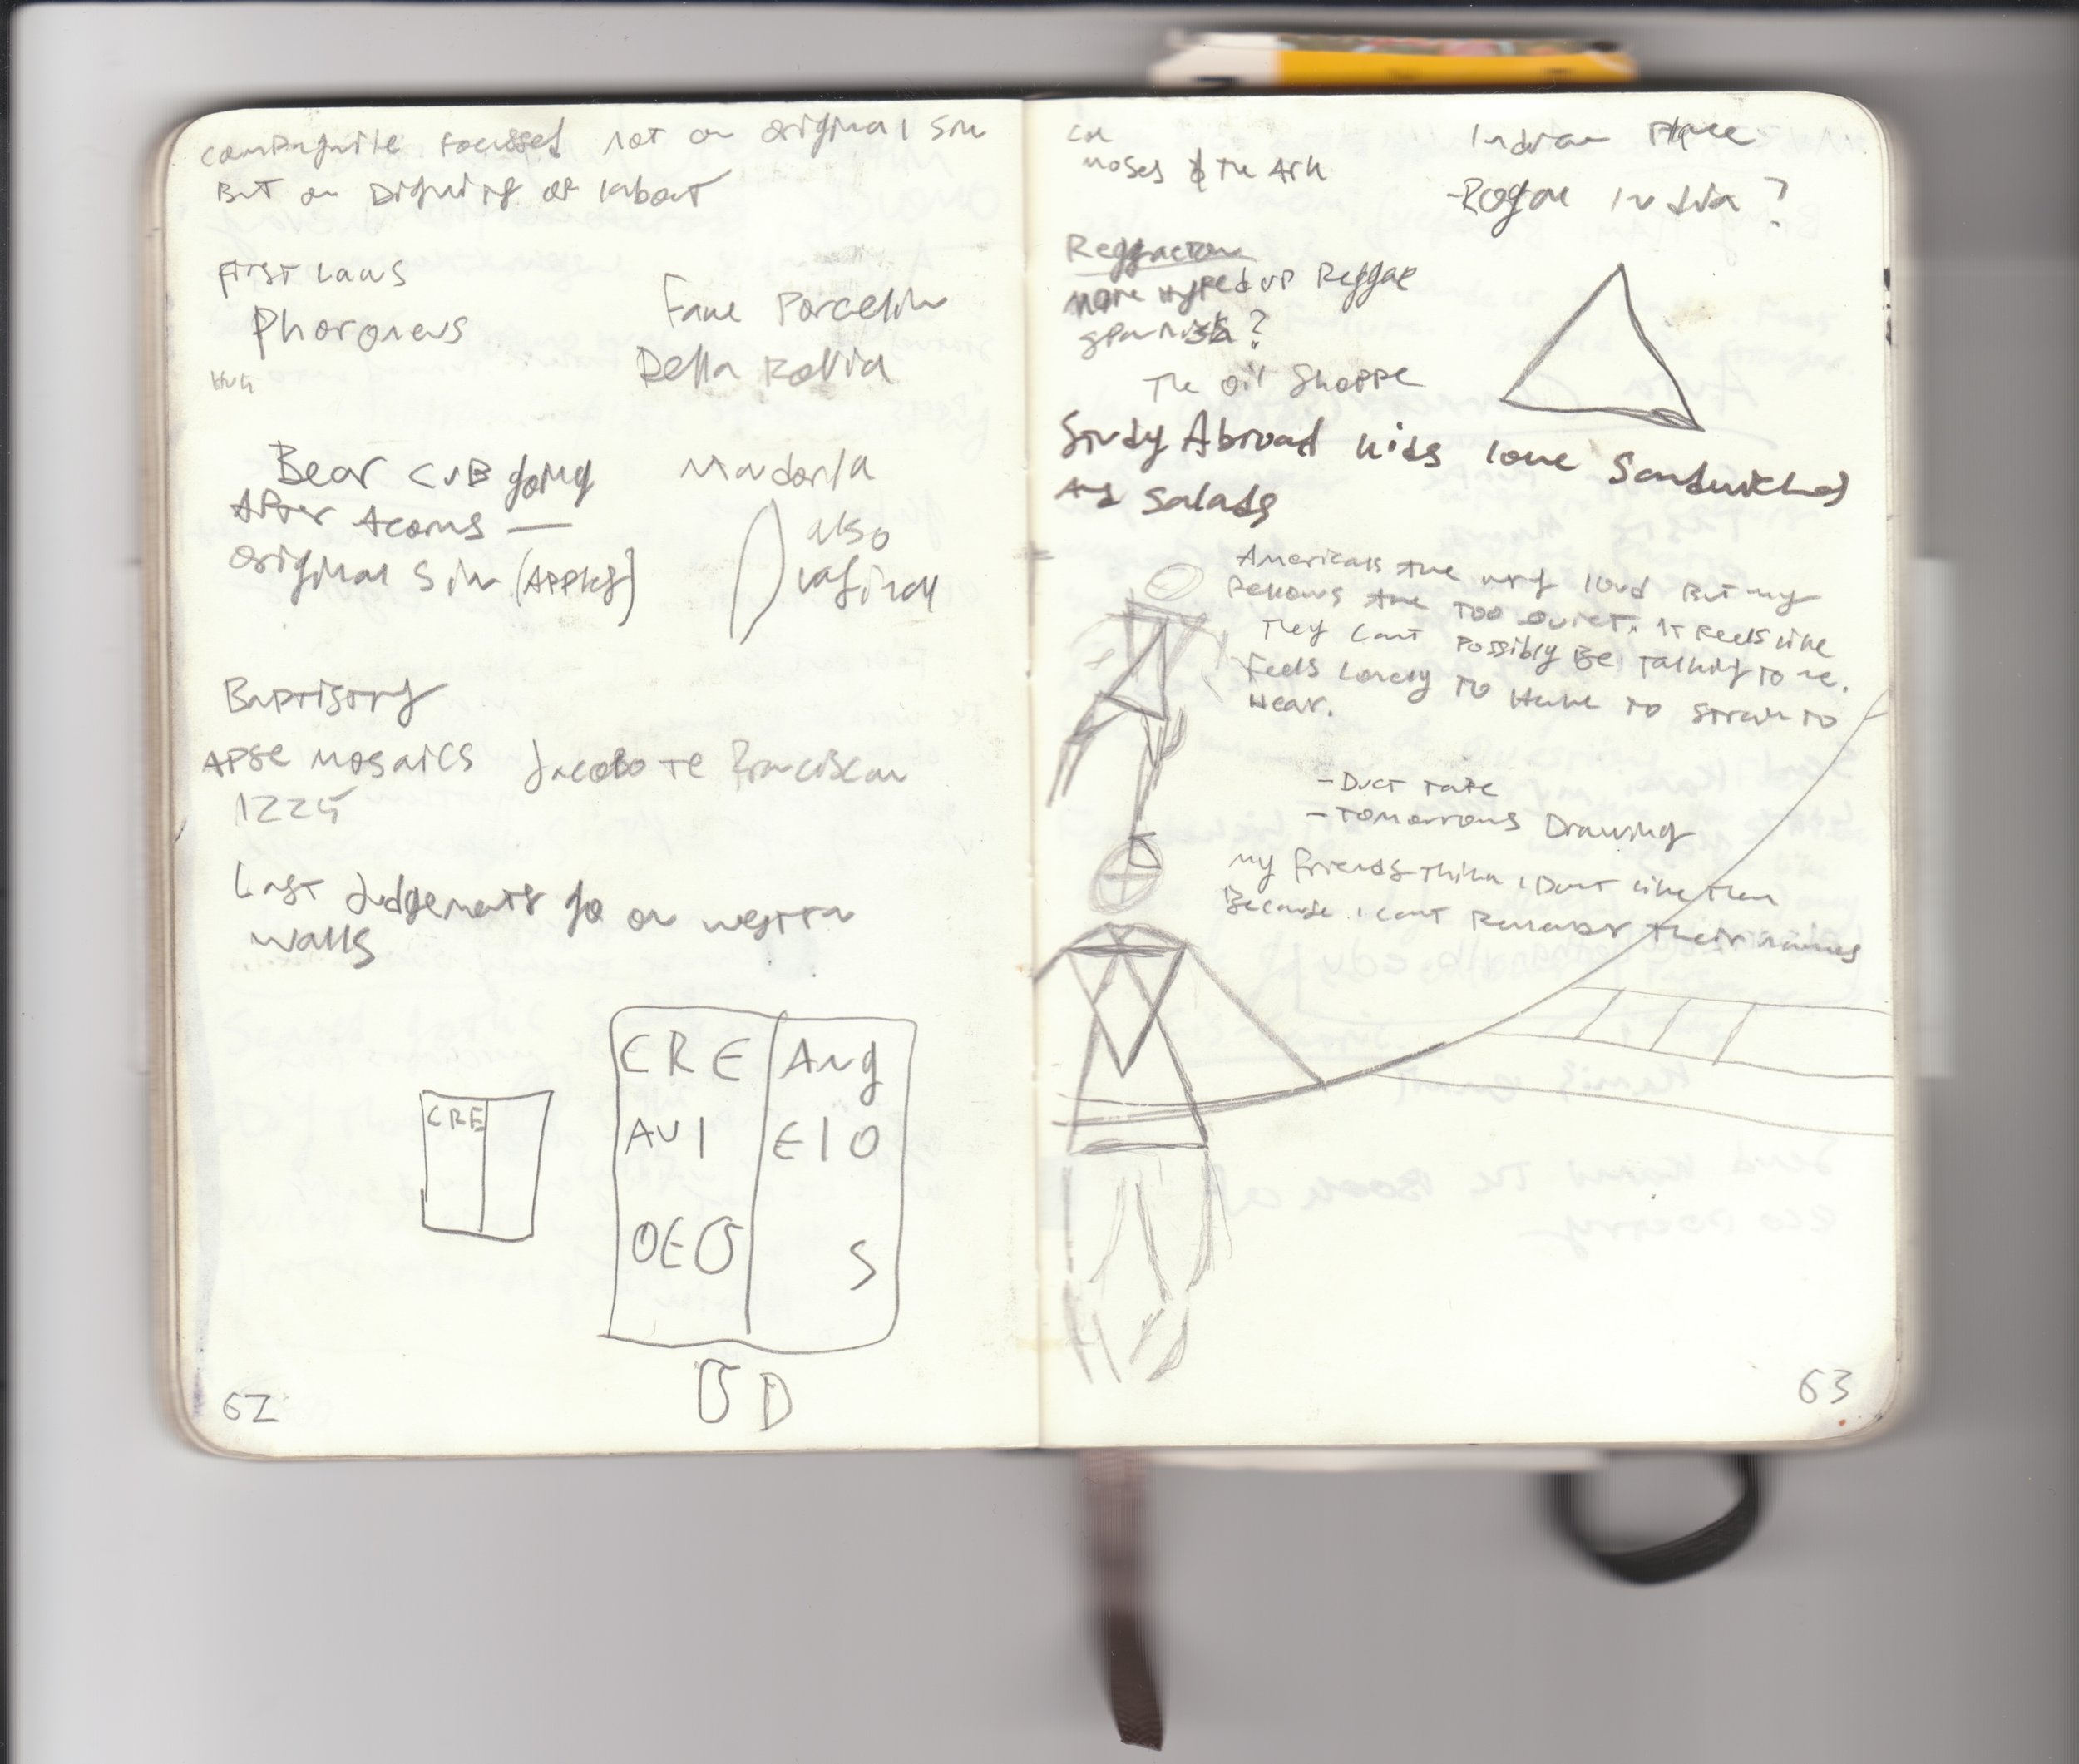 campagnile focussed not on original sin
But on Dignity of labour
First Laws
Phoroneus
Faux Porcelin
Della Robbia
Bear cuB going
After Acorns —
original Sin (Apples)
Mandorla
Also
vaginal
Baptistry
APSE mosaics Jacobo TE Franciscan
1225
Last Judgements go on western
walls
CRE
CRE Aug
AUI EIO
OEO S
62
moses & The Ark
Indian Place
India ?
more Hyped up Reggae
spanish?
The Oil Shoppe
Study Abroad kids love Sandwiches
And Salads
Americans Are very loud But my
fellows Are Too Quiet. It feels like
They Cant Possibly Be Talking To me.
Feels Lonely To Have To Strain To
Hear.
- Duct Tape
- Tomorrows Drawing
my friends think I Dont like them
Because I cant Remember their names
63